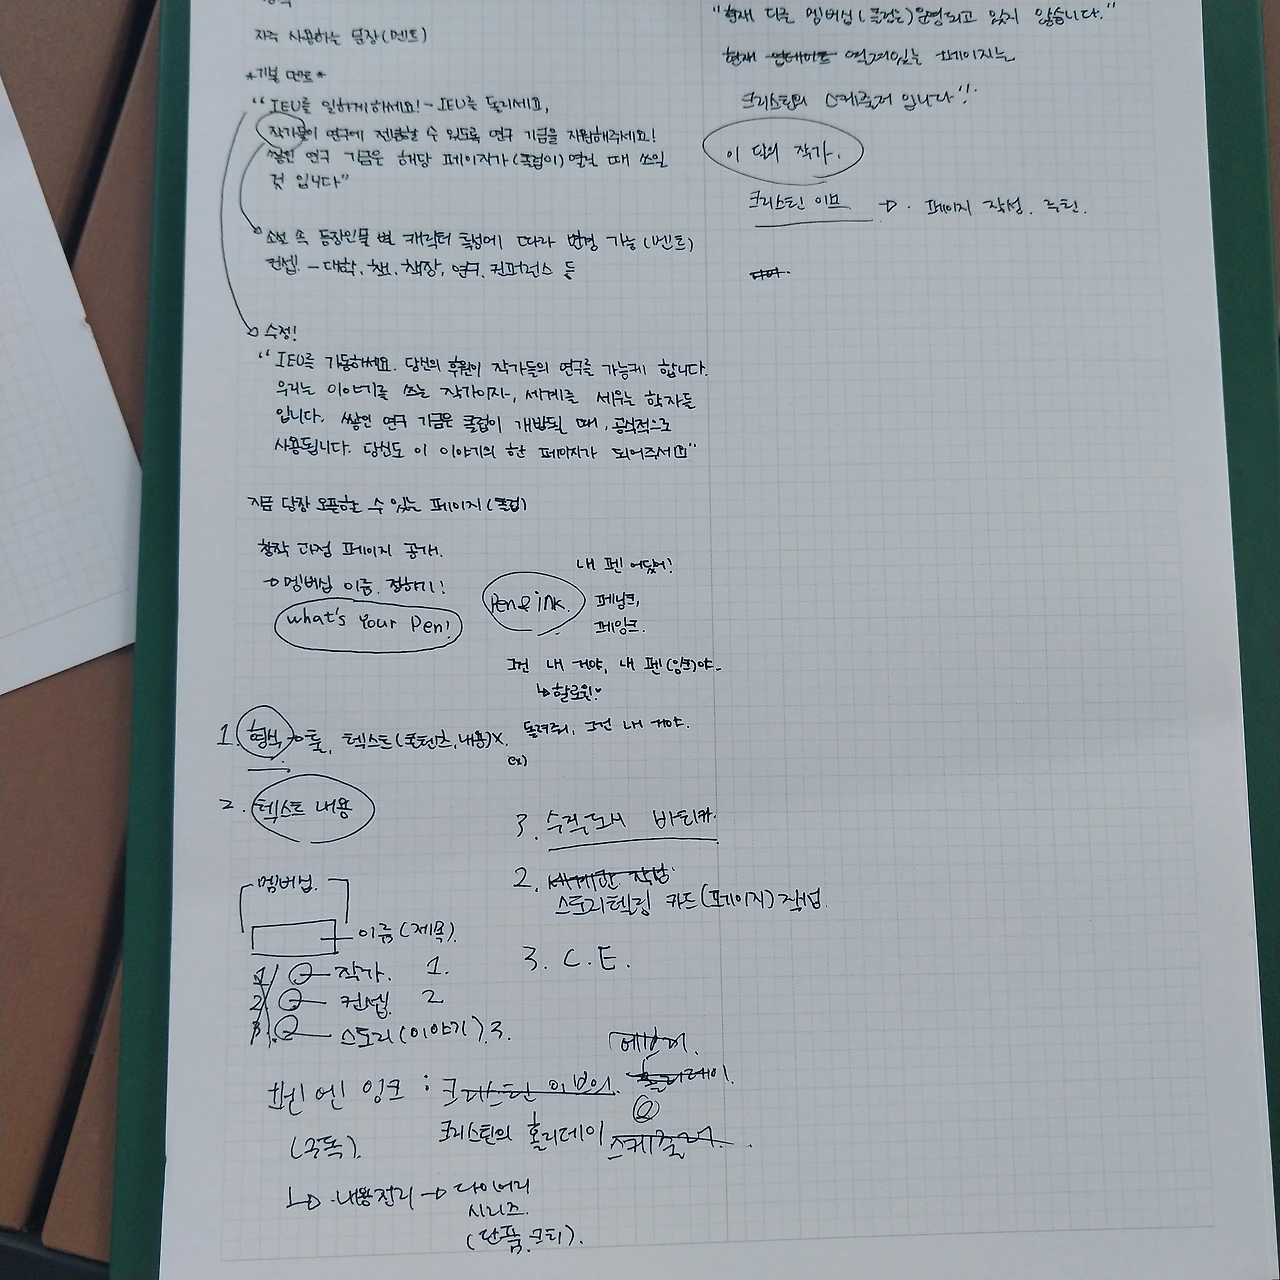 자주 사용하는 문장(멘트)
*기본 멘트*
“IEU를 일하게 해세요! - IEU를 돌리세요,
작가들이 연구에 전념할 수 있도록 연구 기금을 지원해주세요!
쌓인 연구 기금은 해당 페이지가(클럽이) 열릴 때 쓰일
것 입니다”
소설 속 등장인물 별 캐릭터 특성에 따라 변경 가능(멘트)
컨셉. - 대학, 책, 책장, 연구, 컨퍼런스 등
→ 수정!
“IEU를 가동하세요. 당신의 후원이 작가들의 연구를 가능케 합니다.
우리는 이야기를 쓰는 작가이자, 세계를 세우는 학자들
입니다. 쌓인 연구 기금은 클럽이 개방될 때, 공식적으로
사용됩니다. 당신도 이 이야기의 한 페이지가 되어주세요”
지금 당장 오픈할 수 있는 페이지(클럽)
창작 과정 페이지 공개.
→ 멤버십 이름 정하기!
What's Your Pen!
Pen & ink.
내 펜 어딨어!
페닝크,
페잉크.
그건 내 거야, 내 펜(잉크)야.
↳ 할로윈♡
돌려줘, 그건 내 거야.
ex)
1. 형식 → 툴, 텍스트(콘텐츠, 내용)X.
2. 텍스트 내용
멤버십.
이름(제목).
1 작가. 1.
2 컨셉. 2
3. 스토리(이야기). 3.
펜 엔 잉크 : 크리스틴 이브의
(구독).
크리스틴의 홀리데이 스케줄러.
↳ 내용정리 → 다이어리
시리즈.
(단품, 굿티).
“현재 다른 멤버십(클럽은)운영되고 있지 않습니다.”
현재 업데이트 열려있는 페이지는
크리스틴의 스케줄러 입니다”!
이 달의 작가.
크리스틴 이브 → . 페이지 작성. 추천.
3. 수적도시 바티카.
2. 세계관 작법
스토리텔링 카드(페이지) 작성
3. C.E.